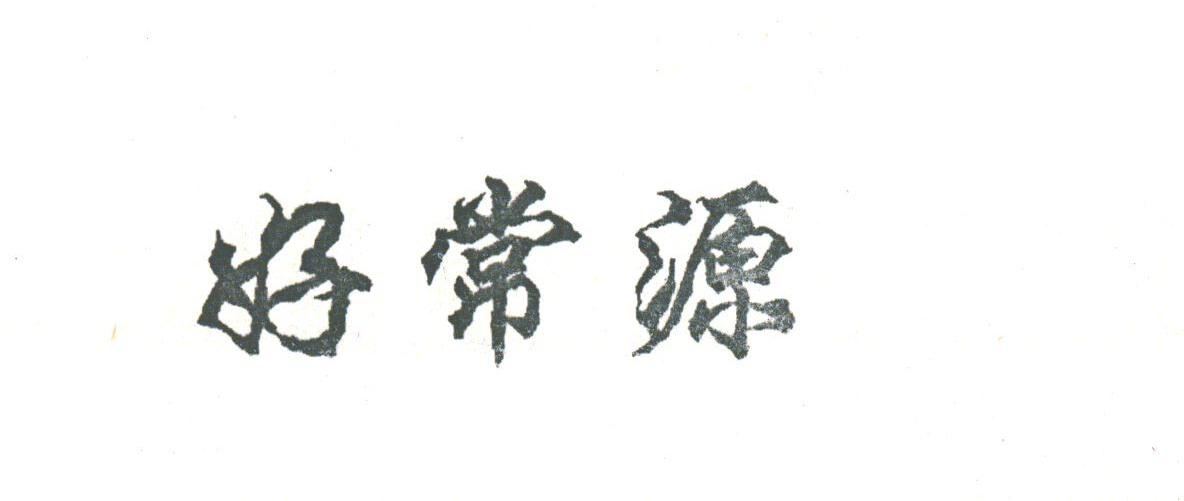 好常源